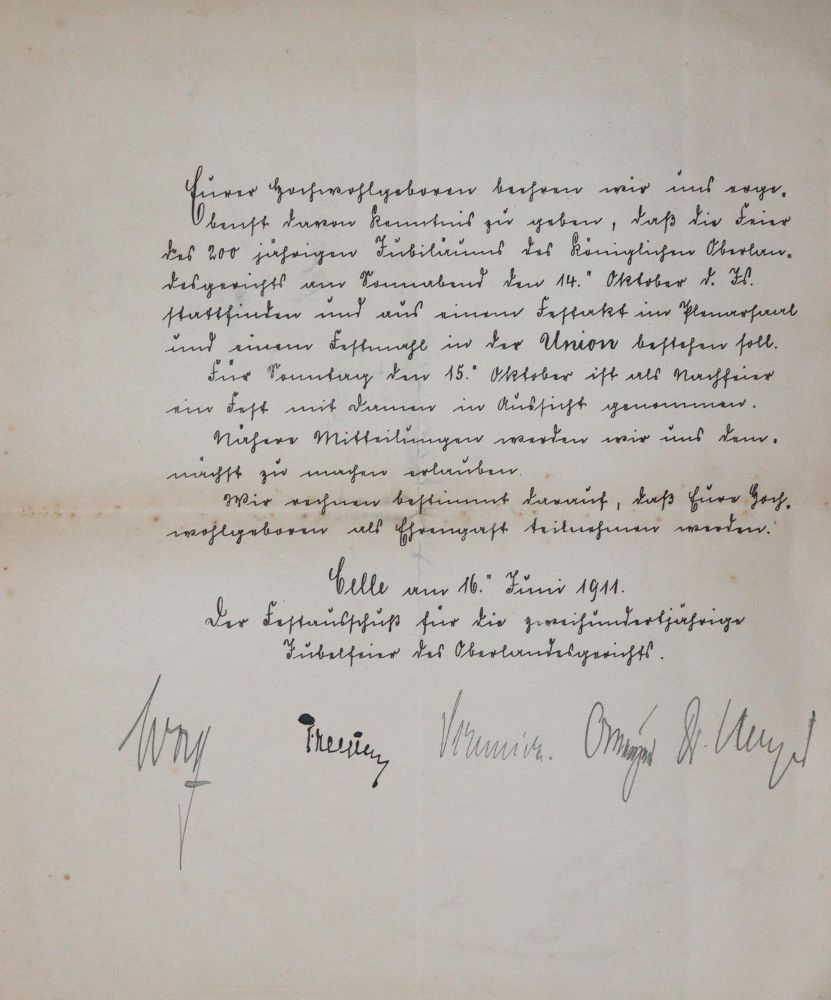 Eurer Hochwohlgeboren beehren wir uns erge-
benst davon Kenntnis zu geben, daß die Feier
des 200 jährigen Jubiläums des Königlichen Oberlan-
desgerichts am Sonnabend den 14.ⁿ Oktober d. Js.
stattfinden und aus einem Festakt im Plenarsaal
und einem Festmahl in der Union bestehen soll.
Für Sonntag den 15.ⁿ Oktober ist als Nachfeier
ein Fest mit Damen in Aussicht genommen.
Nähere Mitteilungen werden wir uns dem-
nächst zu machen erlauben.
Wir rechnen bestimmt darauf, daß Eure Hoch-
wohlgeboren als Ehrengast teilnehmen werden.
Celle am 16.ⁿ Juni 1911.
Der Festausschuß für die zweihundertjährige
Jubelfeier des Oberlandesgerichts.
Dr.